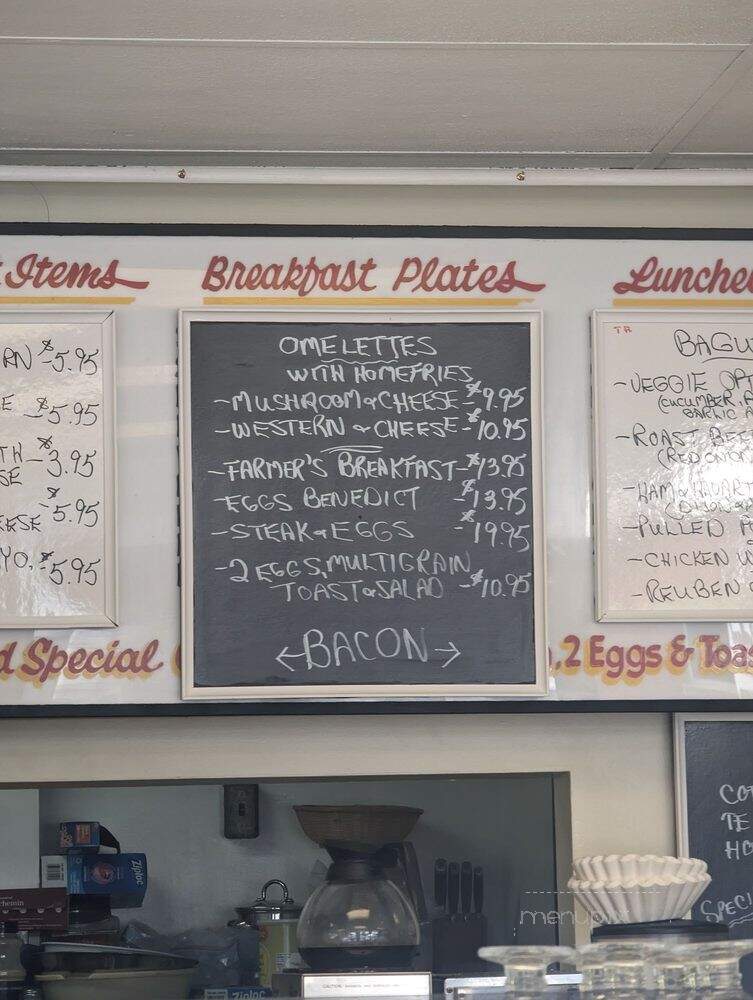 Items
Breakfast Plates
$5.95
$5.95
$3.95
$5.95
$5.95
OMELETTES
WITH HOMEFRIES
-MUSHROOM & CHEESE-$9.95
-WESTERN & CHEESE-$10.95
-FARMER'S BREAKFAST-$13.95
-EGGS BENEDICT -$13.95
-STEAK & EGGS -$19.95
-2 EGGS, MULTIGRAIN
TOAST & SALAD -$10.95
←BACON→
TR
-VEGGIE
(CUCUMBER,
GARLIC
-ROAST BEEF
(RED ONION
-PULLED
-CHICKEN
-REUBEN
Special
2 Eggs &
Ziploc
Ziploc
menupix